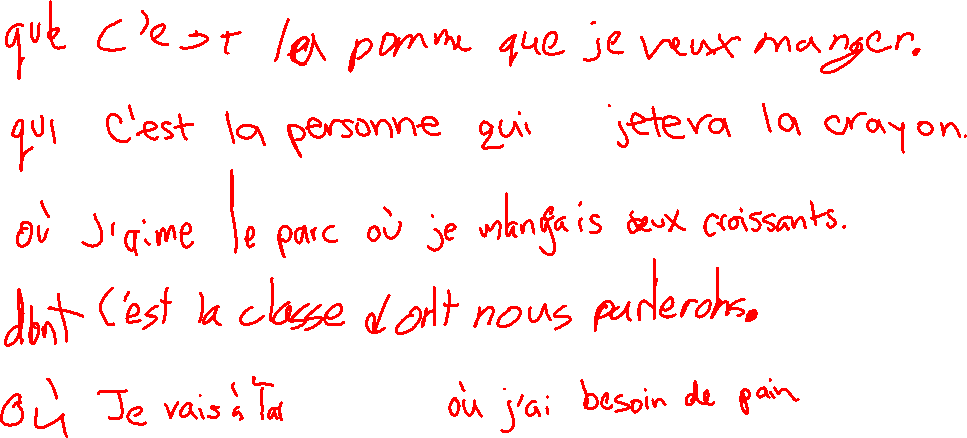 que C'est la pomme que je veux manger.
qui C'est la personne qui jetera la crayon.
où J'aime le parc où je mangais deux croissants.
dont C'est la classe dont nous parlerons.
Où Je vais à où j'ai besoin de pain